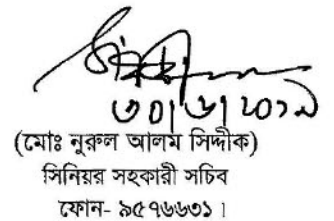 ৩০|৬|২০১৯
(মোঃ নুরুল আলম সিদ্দীক)
সিনিয়র সহকারী সচিব
ফোন- ৯৫৭৬৬৩১।